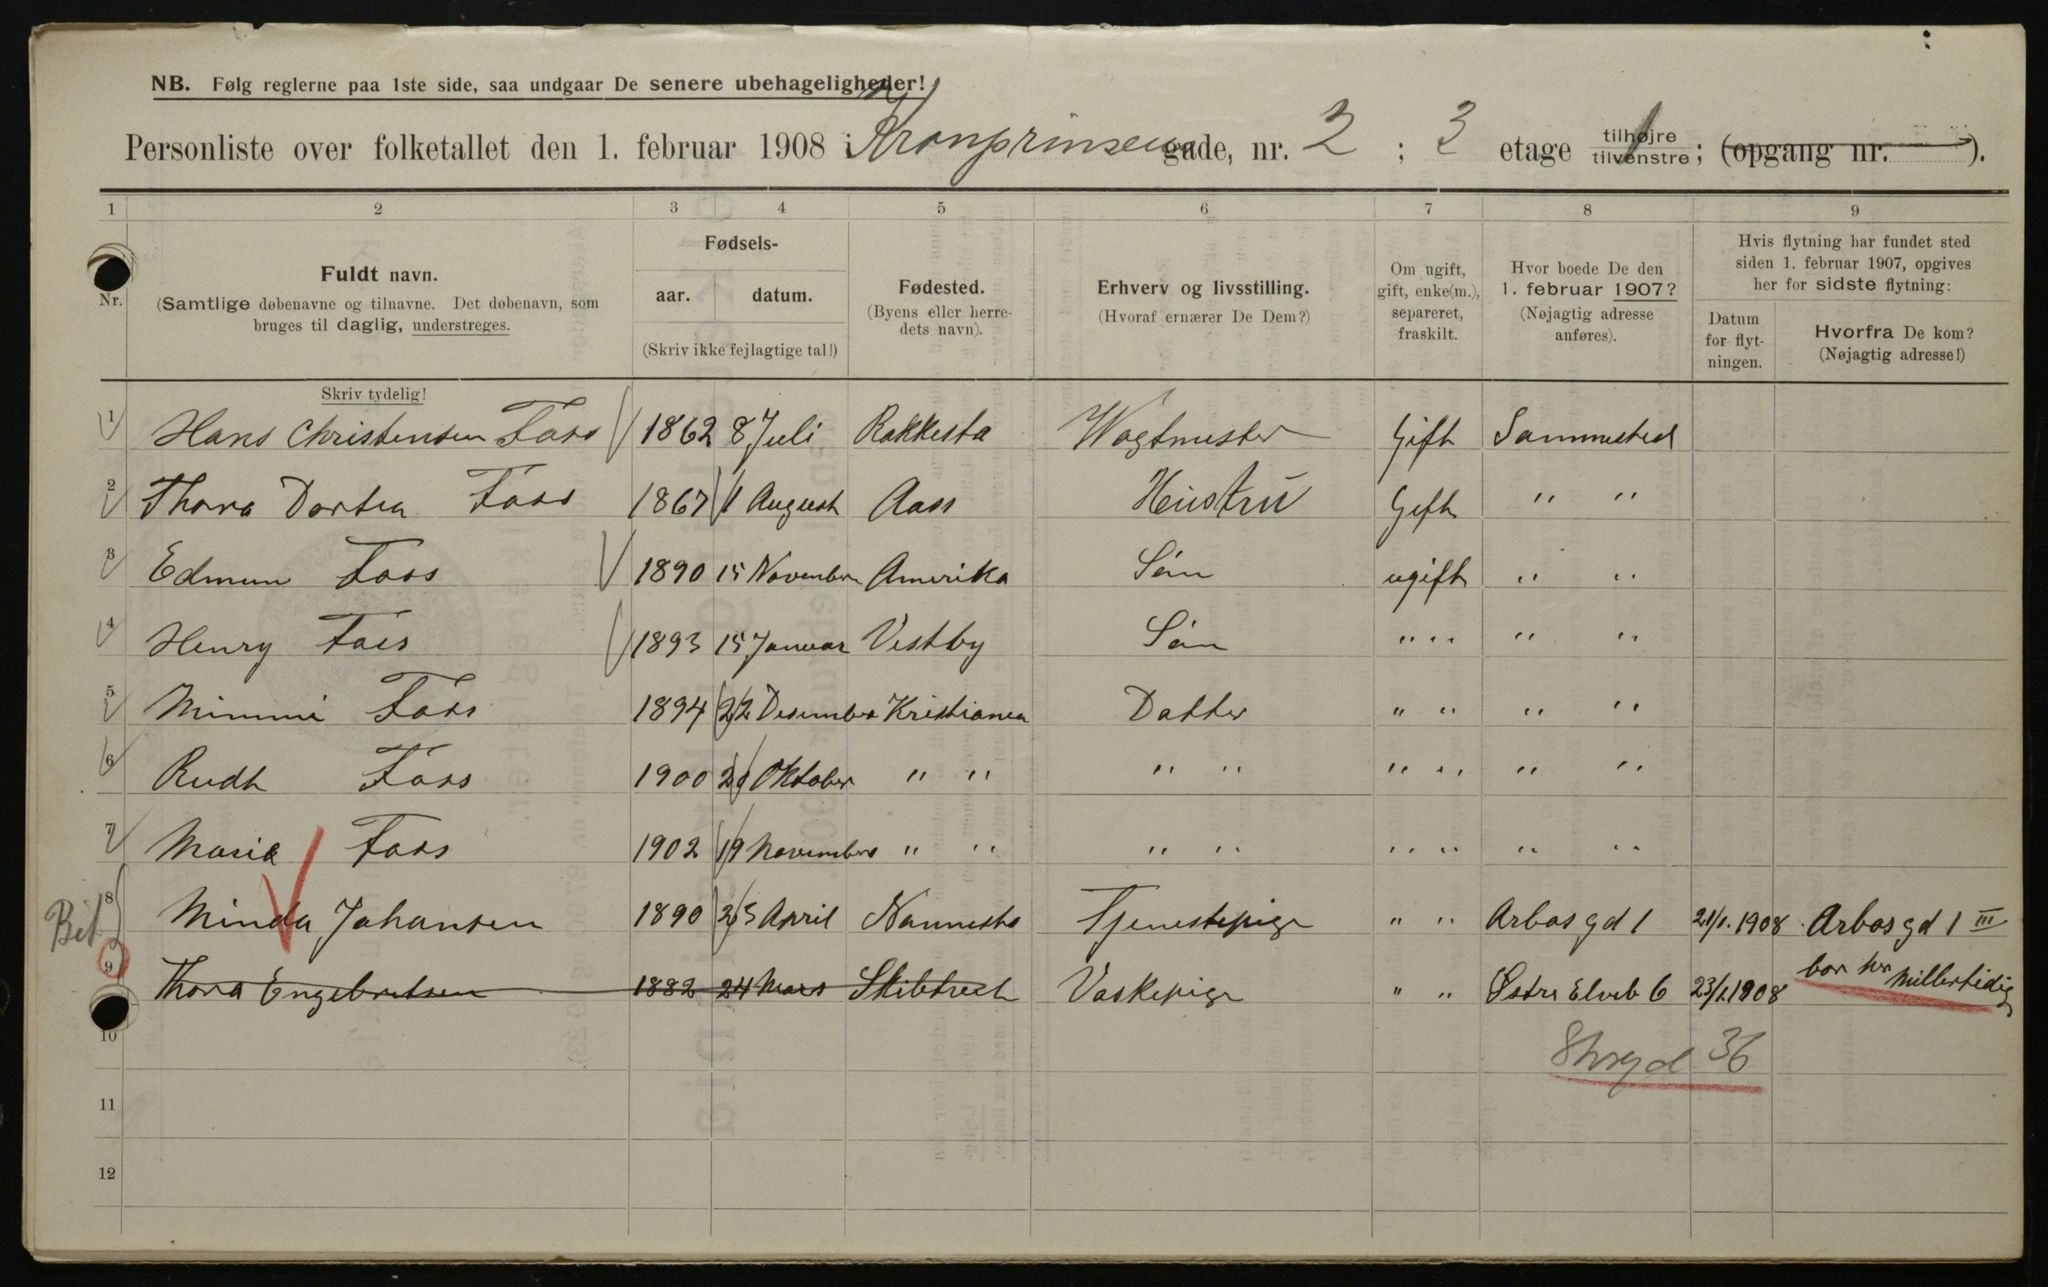 NB. Følg reglerne paa 1ste side, saa undgaar De senere ubehageligheder!
Personliste over folketallet den 1. februar 1908 i Kronprinsensgade, nr. 2 ; 3 etage tilhøjre tilvenstre ; (opgang nr. ).
1 2 3 4 5 6 7 8 9
Nr.
Fuldt navn.
(Samtlige døbenavne og tilnavne. Det døbenavn, som
bruges til daglig, understreges.
Skriv tydelig!
Fødsels-
aar. datum.
(Skriv ikke fejlagtige tal!)
Fødested.
(Byens eller herre-
dets navn).
Erhverv og livsstilling.
(Hvoraf ernærer De Dem?)
Om ugift,
gift, enke(m.),
separeret,
fraskilt.
Hvor boede De den
1. februar 1907?
(Nøjagtig adresse
anføres).
Hvis flytning har fundet sted
siden 1. februar 1907, opgives
her for sidste flytning:
Datum
for flyt-
ningen.
Hvorfra De kom?
(Nøjagtig adresse!)
1 Hans Christensen Foss 1862 8 Juli Rakkesta Wagtmester Gift Sammested
2 Thora Dortea Foss 1867 1 August Aass Hüstrü Gift " "
3 Edmun Foss 1890 15 November Amerika Søn ugift " "
4 Henry Foss 1893 15 Januar Vestby Søn " " " "
5 Mimmi Foss 1894 22 Desember Kristiania Datter " " " "
6 Rudt Foss 1900 20 Oktober " " " " " " " "
7 Maria Foss 1902 19 November " " " " " " " "
Bet
8 Minda Johansen 1890 23 April Nannesta Tjenestepige " " Arbosgd 1 21/1. 1908 Arbosgd 1 III
9 Thora Engebretsen 1882 24 Mars Skibtvedt Vaskepige " " Østre Elveb 6 23/1. 1908 bor her
Millertidig
10 36
11
12